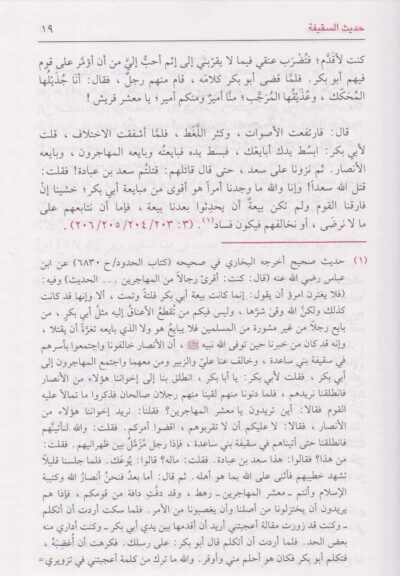 حديث السقيفة
١٩
كنت لأقدَّم؛ فتُضْرَب عنقي فيما لا يقرّبني إلى إثم أحبُّ إليَّ من أن أؤمّر على قوم
فيهم أبو بكر. فلمَّا قضى أبو بكر كلامَه، قام منهم رجلٌ، فقال: أنا جُذَيْلُها
المُحَكّك، وعُذَيْقُها المُرَجَّب؛ منَّا أميرٌ ومنكم أمير؛ يا معشر قريش!
قال: فارتفعت الأصوات، وكثر اللَّغط، فلمَّا أشفقت الاختلاف، قلت
لأبي بكر: ابسُط يدك أبايعْك، فبسط يده فبايعتُه وبايعه المهاجرون، وبايعه
الأنصار. ثم نزونا على سعد، حتى قال قائلهم: قتلتُم سعد بن عبادة! فقلت:
قتل الله سعداً! وإنا والله ما وجدنا أمراً هو أقوى من مبايعة أبي بكر؛ خشينا إنْ
فارقنا القوم ولم تكن بيعةٌ أن يحدِثوا بعدنا بيعة، فإما أن نتابعهم على
ما لا نرضَى، أو نخالفهم فيكون فساد(١). (٣: ٢٠٣/٢٠٤/٢٠٥/٢٠٦).
(١) حديث صحيح أخرجه البخاري في صحيحه (كتاب الحدود/ح ٦٨٣٠) عن ابن
عباس رضي الله عنه (قال: كنت أقرئ رجالاً من المهاجرين ... الحديث) وفيه:
(فلا يغترن امرؤ أن يقول: إنما كانت بيعة أبي بكر فلتةً وتمت، ألا وإنها قد كانت
كذلك ولكنَّ الله وقىٰ شرّها، وليس فيكم من تُقطَعُ الأعناقُ إليه مثلُ أبي بكر، من
بايع رجلاً من غير مشورة من المسلمين فلا يبايعُ هو ولا الذي بايعه تغرَّةً أن يقتلا،
وإنه قد كان من خبرنا حين توفى الله نبيه ﷺ، أن الأنصار خالفونا واجتمعوا بأسرهم
في سقيفة بني ساعدة، وخالف عنا عليٌّ والزبير ومن معهما واجتمع المهاجرون إلى
أبي بكر، فقلت لأبي بكر: يا أبا بكر، انطلق بنا إلى إخواننا هؤلاء من الأنصار
فانطلقنا نريدهم، فلما دنونا منهم لقينا منهم رجلان صالحان فذكروا ما تمالأ عليه
القوم فقالا: أين تريدون يا معشر المهاجرين؟ فقلنا: نريد إخواننا هؤلاء من
الأنصار، فقالا: لا عليكم أن لا تقربوهم، اقضوا أمركم. فقلت: والله لنأتينَّهم
فانطلقنا حتى أتيناهم في سقيفة بني ساعدة، فإذا رجل مُزمَّلٌ بين ظهرانيهم. فقلت:
من هذا؟ فقالوا: هذا سعد بن عبادة. فقلت: ماله؟ قالوا: يُوعَك. فلما جلسنا قليلاً
تشهد خطيبهم فأثنى على الله بما هو أهله. ثم قال: أما بعدُ فنحنُ أنصارُ الله وكتيبة
الإسلام وأنتم ـ معشر المهاجرين ـ رهط، وقد دفَّت دافة من قومكم، فإذا هم
يريدون أن يختزلونا من أصلنا وأن يغصبونا من الأمر. فلما سكت أردت أن أتكلم
ـ وكنت قد زورت مقالة أعجبتني أريد أن أقدمها بين يدي أبي بكر ـ وكنت أداري منه
بعض الحد. فلما أردت أن أتكلم قال أبو بكر: على رسلك. فكرهت أن أُغضِبَهُ،
فتكلم أبو بكر فكان هو أحلم مني وأوقر. والله ما ترك من كلمة أعجبتني في تزويري=